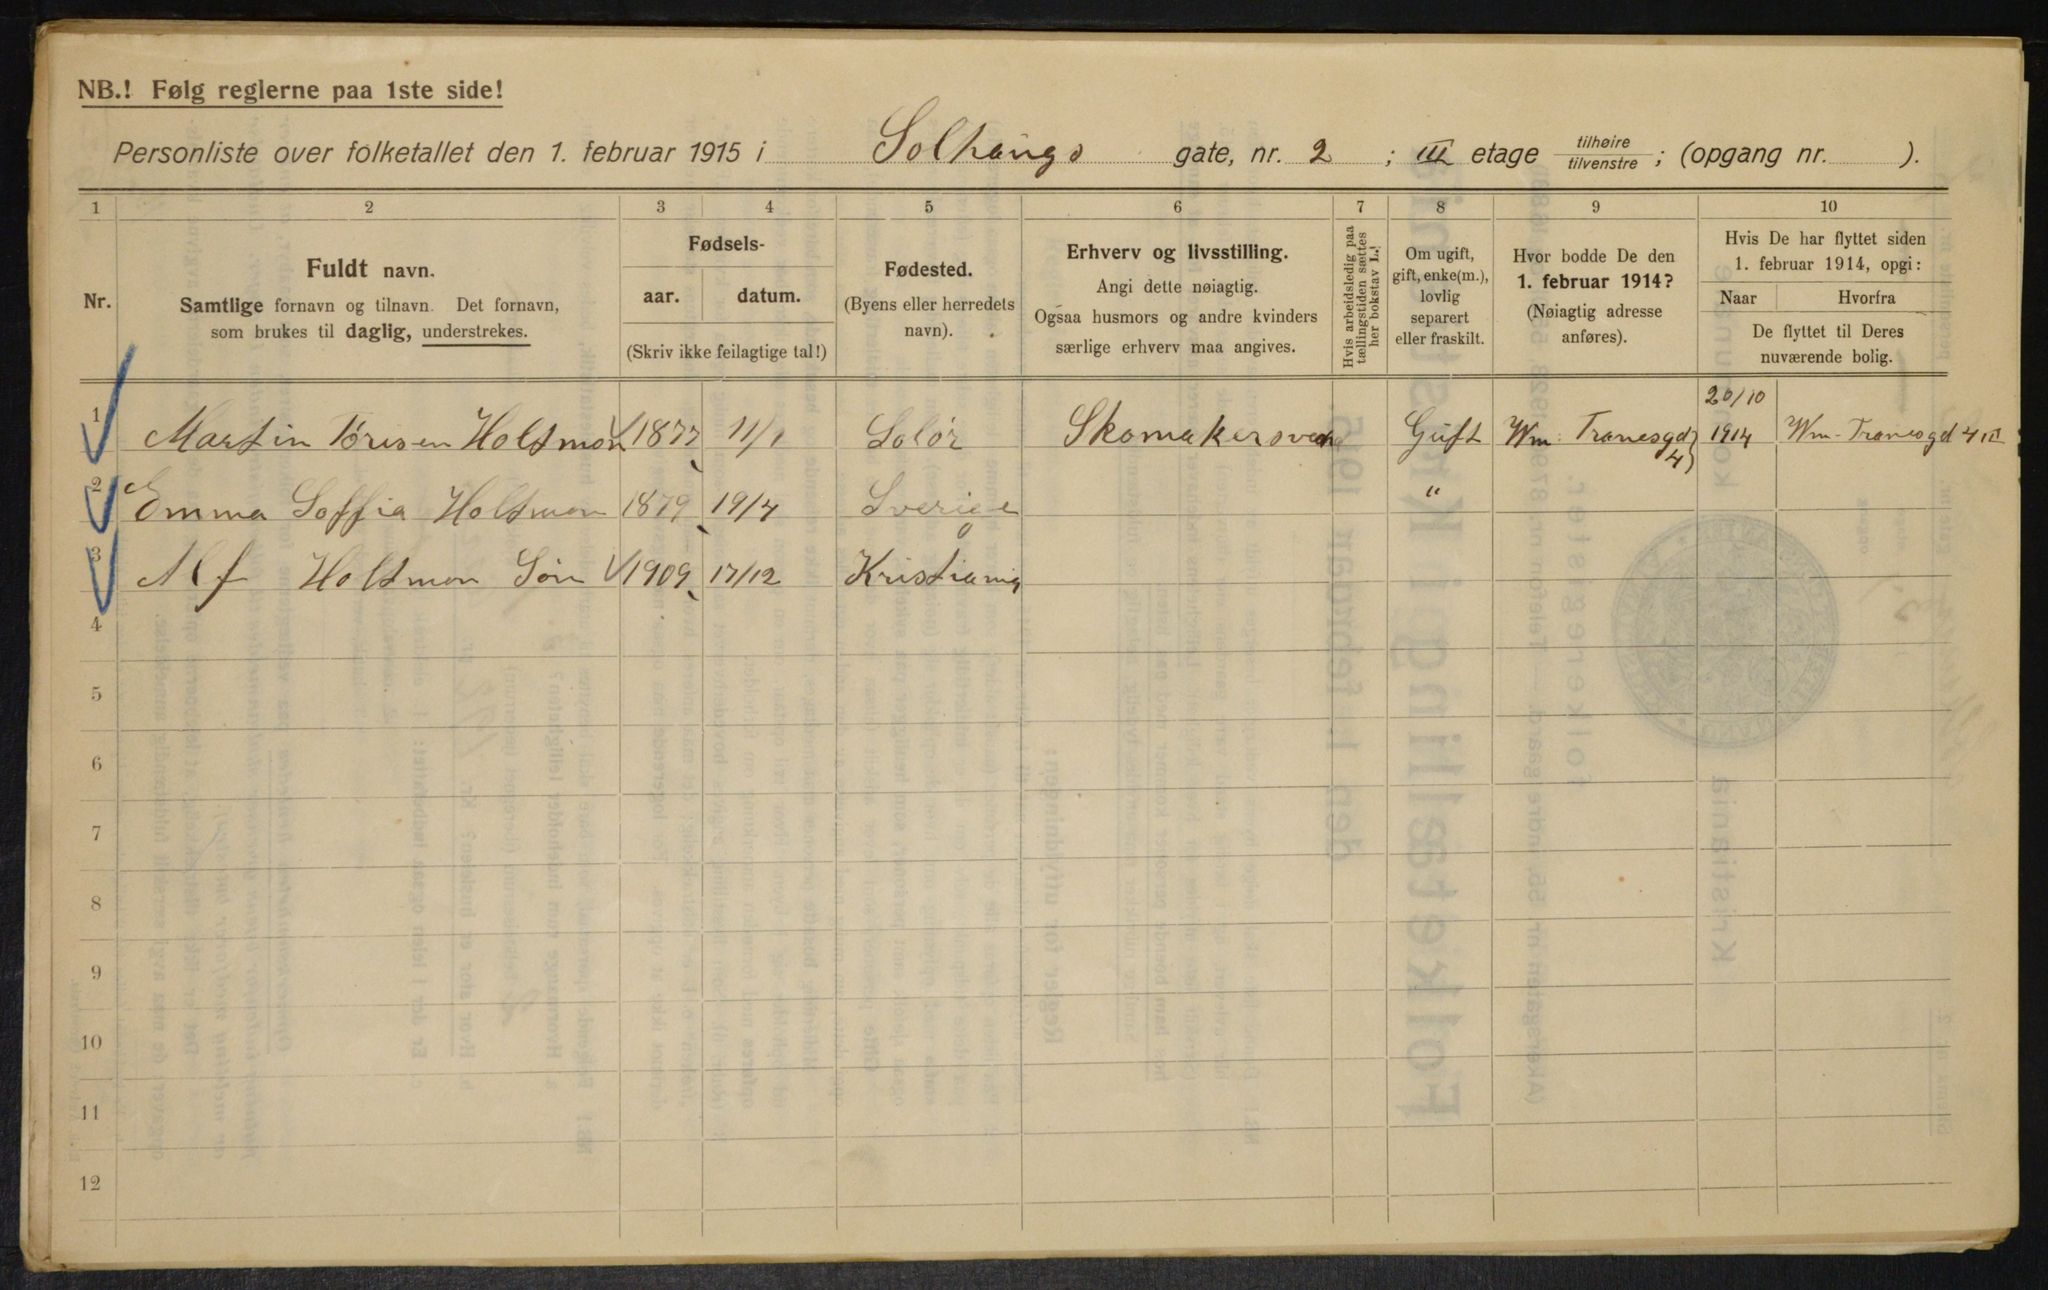 NB.! Følg reglerne paa 1ste side!
Personliste over folketallet den 1. februar 1915 i Solhaugs gate, nr. 2 ; III etage tilhøire tilvenstre ; (opgang nr. ).
1 2 3 4 5 6 7 8 9 10
Nr.
Fuldt navn.
Samtlige fornavn og tilnavn. Det fornavn,
som brukes til daglig, understrekes.
Fødsels-
aar. datum.
(Skriv ikke feilagtige tal!)
Fødested.
(Byens eller herredets
navn).
Erhverv og livsstilling.
Angi dette nøiagtig.
Ogsaa husmors og andre kvinders
særlige erhverv maa angives.
Hvis arbeidsledig paa
tællingstiden sættes
her bokstav L!
Om ugift,
gift, enke(m.),
lovlig
separert
eller fraskilt.
Hvor bodde De den
1. februar 1914?
(Nøiagtig adresse
anføres).
Hvis De har flyttet siden
1. februar 1914, opgi:
Naar Hvorfra
De flyttet til Deres
nuværende bolig.
1 Martin Torisen Holtmon 1877 11/1 Solør Skomakersvend Gift Wm. Tranesgd 4 20/10 1914 Wm. Tranesgd 4 III
2 Emma Soffia Holtmon 1879 19/4 Sverige "
3 Alf Holtmon Søn 1909 17/12 Kristiania
4
5
6
7
8
9
10
11
12